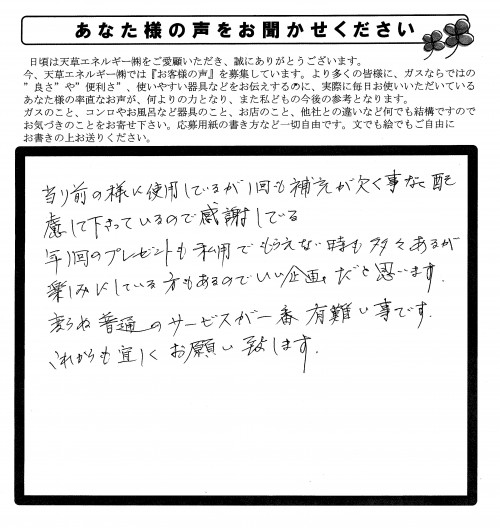 あなた様の声をお聞かせください
日頃は天草エネルギー㈱をご愛顧いただき、誠にありがとうございます。
今、天草エネルギー㈱では『お客様の声』を募集しています。より多くの皆様に、ガスならではの
”良さ”や”便利さ”、使いやすい器具などをお伝えするのに、実際に毎日お使いいただいている
あなた様の率直なお声が、何よりの力となり、また私どもの今後の参考となります。
ガスのこと、コンロやお風呂など器具のこと、お店のこと、他社との違いなど何でも結構ですので
お気づきのことをお寄せ下さい。応募用紙の書き方など一切自由です。文でも絵でもご自由に
お書きの上お送りください。
当り前の様に使用しているが1回も補充が欠く事なく配
慮して下さっているので感謝している
年1回のプレゼントも私用でもらえない時も多々あるが
楽しみにしている方もあるのでいい企画だと思います.
変らぬ普通のサービスが一番有難い事です.
これからも宜しくお願い致します.